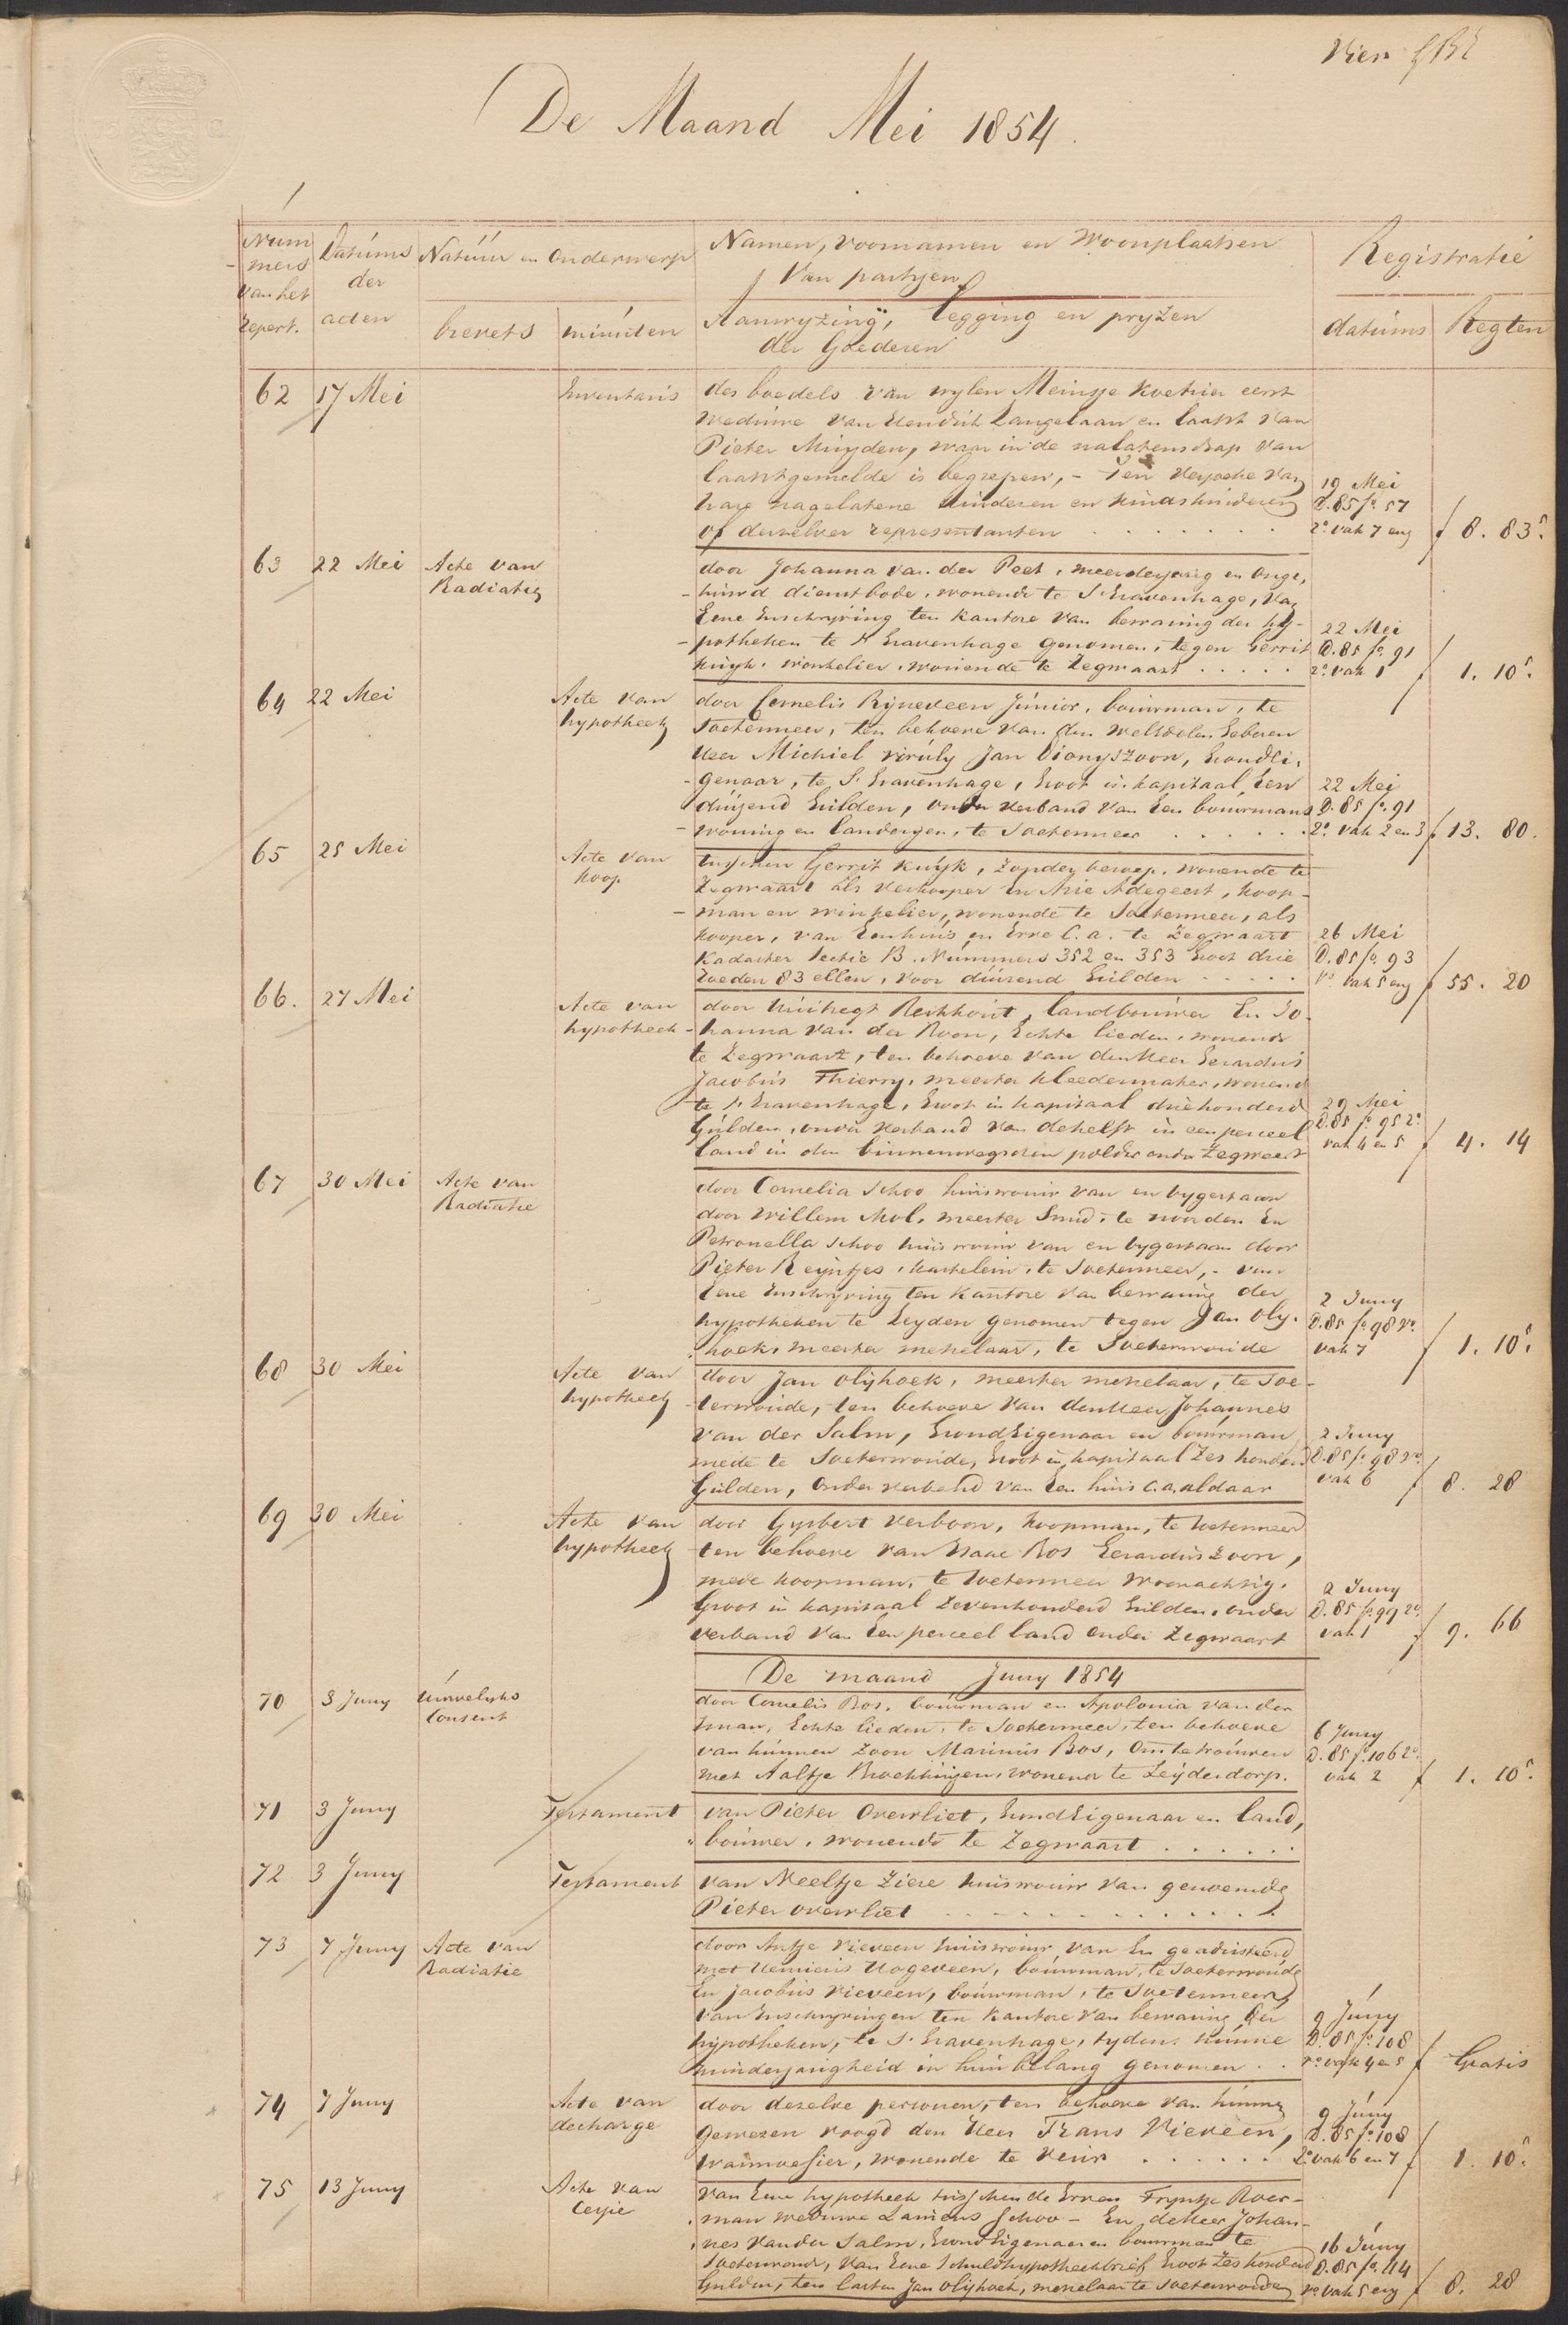 Vier
De Maand Mei 1854.
Num
mers
van het
Repert.
Datúms
der
acten
Natúúr en Onderwerp
brevets
minúúten
Namen, voornamen en Woonplaatsen
Van partyen
Aanwyzing, legging en pryzen
der Goederen
Registratie
datúms
Regten
62 17 Mei Inventaris
des boedels van wylen Meinsje Koetsier eerst
Weduwe van Hendrik Langelaan en laatst van
Pieter Muyden, waar in de nalatenschap van
laatstgemelde is begrepen, - Ten verzoeke van
hare nagelatene kinderen en kindskinderen
of derzelver representanten
19 Mei
D. 85 fo. 57
2o. vak 7 env
f 8. 83⁵.
63 22 Mei Acte van
Radiatie
door Johanna van der Peet, meerderjarig en onge,
- húwd dienstbode, wonende te S'Gravenhage, van
Eene Inschryving ten kantore van bewaring der hy-
- potheken te S'Gravenhage genomen, tegen Gerrit
Kuyk, winkelier, wonende te Zegwaart
22 Mei
D. 85 fo. 91
2o. vak 1
f 1. 10⁵.
64 22 Mei Acte van
hypotheek
door Cornelis Ryneveen Júnior, bouwman, te
Soetermeer, ten behoeve van den WelEdelen Geboren
Heer Michiel Virúly Jan Dionyszoon, Grondei,
- genaar, te S'Gravenhage, Groot in kapitaal, Een
dúizend Gúlden, onder verband van Een bouwmans
- woning en landeryen, te Soetermeer
22 Mei
D. 85 fo. 91
2o. vak 2 en 3
f 13. 80.
65 25 Mei Acte van
koop
tusschen Gerrit Kuyk, zonder beroep, wonende te
Zegwaart als verkooper en Arie Adegeest, koop-
- man en winkelier, wonende te Soetermeer, als
kooper, van Een huis en Erve C.a. te Zegwaart
Kadaster Sectie B. Nummers 352 en 353 Groot drie
roeden 83 ellen, voor dúizend Gúlden
26 Mei
D. 85 fo. 93
vo vak 5 env
f 55. 20
66. 27 Mei Acte van
hypotheek
door Huibregt Kerkhout, landbouwer En Jo-
- hanna van der Roon, Echte lieden, wonende
te Zegwaart, ten behoeve van den Heer Gerardus
Jacobus Thierry, meester kleedermaker, wonend
te S'Gravenhage, Groot in kapitaal driehonderd
Gulden, onder verband van de helft in een perceel
land in den binnenwegschen polder onder Zegwaart
29 Mei
D. 85 fo. 95 2o.
vak 4 en 5
f 4. 14
67 30 Mei Acte van
Radiatie
door Cornelia Schoo huisvrouw van en bygestaan
door Willem Mol, meester Smid, te noorden En
Petronella Schoo huisvrouw van en bygestaan door
Pieter Reijntjes, kastelein, te Soetermeer, - van
Eene Inschryving ten Kantore van bewaring der
hypotheken te Leyden genomen tegen Jan Oly-
hoek, meester metselaar, te Soeterwoude
2 Juny
D. 85 fo. 98 vo.
vak 7
f 1. 10⁵.
68 30 Mei Acte van
hypotheek
door Jan Olijhoek, meester metselaar, te Soe-
- terwoude, ten behoeve van den Heer Johannes
van der Salm, GrondEigenaar en bouwman
mede te Soeterwoude, Groot in kapitaal Zes honderd
Gúlden, Onder verband van Een huis C.a. aldaar
2 Juny
D. 85 fo. 98 vo.
vak 6
f 8. 28
69 30 Mei Acte van
hypotheek
door Gysbert Verboon, koopman, te Soetermeer
ten behoeve van Isaac Bos Gerardus Zoon,
mede koopman, te Soetermeer woonachtig,
Groot in kapitaal Zevenhonderd Gúlden, onder
verband van Een perceel land onder Zegwaart
2 Juny
D. 85 fo. 99 2o.
vak 1
f 9. 66
De maand Juny 1854
70 3 Juny Húwelyks
Consent
door Cornelis Bos, bouwman en Apolonia van der
Sman, Echte lieden, te Soetermeer, ten behoeve
van húnnen Zoon Marinús Bos, Om te trouwen
met Aaltje wonende te Leijderdorp.
6 Juny
D. 85 fo. 106 2o.
vak 2
f 1. 10⁵.
71 3 Juny Testament
van Pieter Overvliet, GrondEigenaar en land,
bouwer, wonende te Zegwaart
72 3 Juny Testament
van Neeltje Ziere huisvrouw van genoemde
Pieter Overvliet
73 7 Juny Acte van
Radiatie
door Antje Vieveen huisvrouw van En geadsisteerd
met Hogeveen, bouwman, te Soeterwoude
En Jacobus Vieveen, bouwman, te Soetermeer,
van Inschryvingen ten Kantore van bewaring der
hypotheken, te S'Gravenhage, tydens húnne
minderjarigheid in hun belang genomen
9 Júny
D. 85 fo. 108
vo. vak 4 en 5
f Gratis
74 7 Juny Acte van
decharge
door dezelve personen, ten behoeve van húnne
gewezen voogd den Heer Frans Vieveen,
wonende te Veur
9 Júny
D. 85 fo. 108
2o. vak 6 en 7
f 1. 10⁵.
75 13 Juny Acte van
Cessie
van Eene hypotheek tusschen de Erven Fryntje Roer-
man weduwe Schoo - En de Heer Johan-
nes van der Salm, GrondEigenaar en bouwman te
Soeterwoude, van Eene Schuldhypotheekbrief Groot Zes honderd
Gulden, ten laste Jan Olijhoek, metselaar te Soeterwoude
16 Júny
D. 85 fo. 114
vo. vak 5 env
f 8. 28